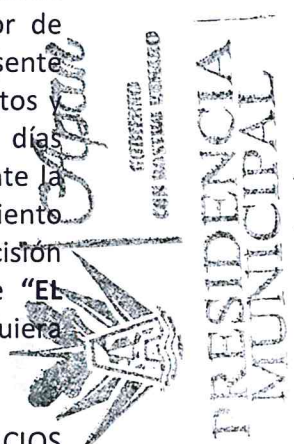 or de
sente
tos y
días
nte la
iento
cisión
e "EL
uiera
CIOS
GOBIERNO
CON
PRESIDENCIA
MUNICIPAL